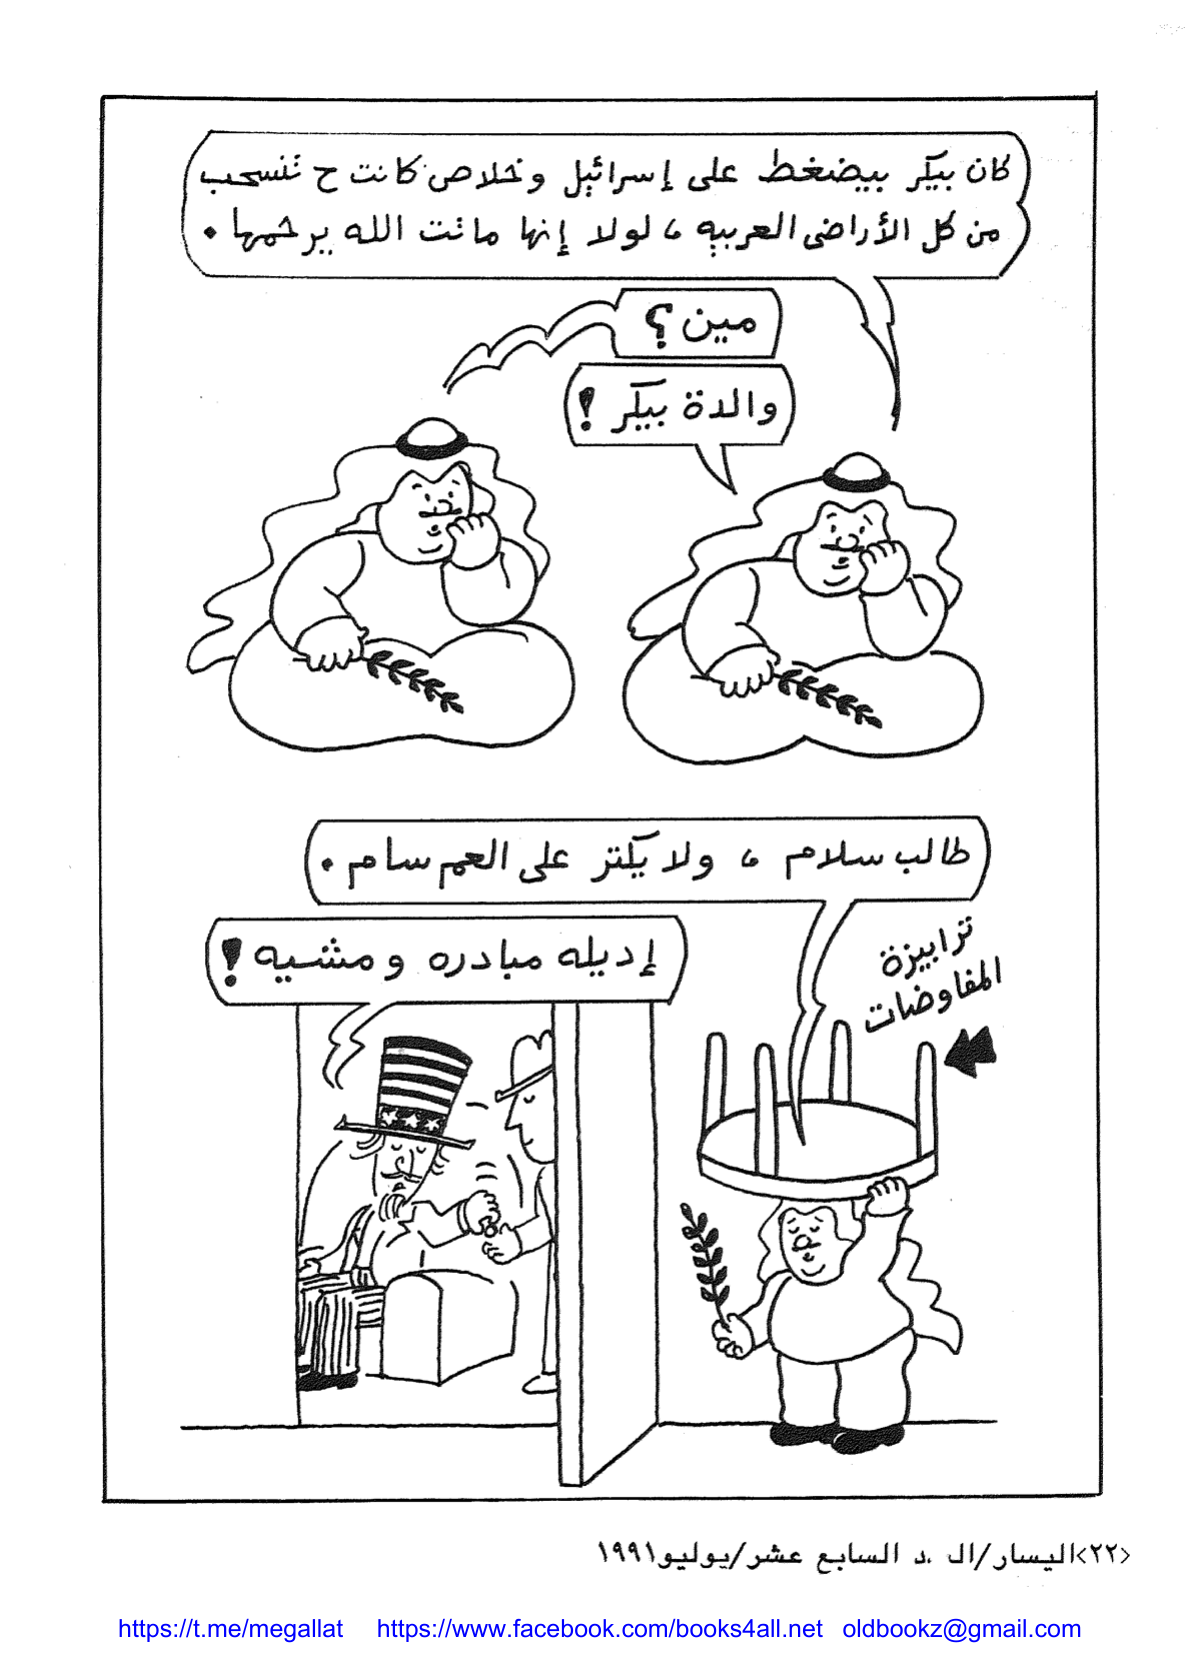 كان بيكر بيضغط على إسرائيل وخلاص كانت ح تنسحب
من كل الأراضى العربيه ، لولا إنها ماتت الله يرحمها .
مين ؟
والدة بيكر !
طالب سلام ، ولا يكتر على العم سام .
إديله مبادره ومشيه !
ترابيزة
المفاوضات
<٢٢>اليسار/ال د السابع عشر/يوليو١٩٩١
https://t.me/megallat https://www.facebook.com/books4all.net oldbookz@gmail.com